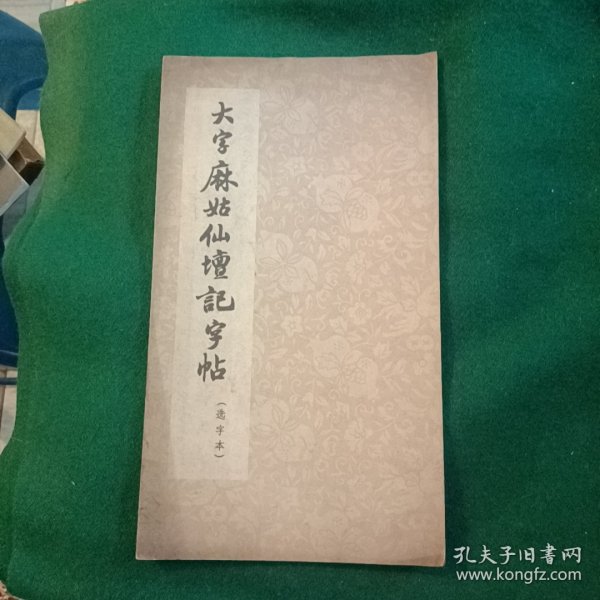 大字麻姑仙壇記字帖
（选字本）
孔夫子旧書网
www.kongfz.com